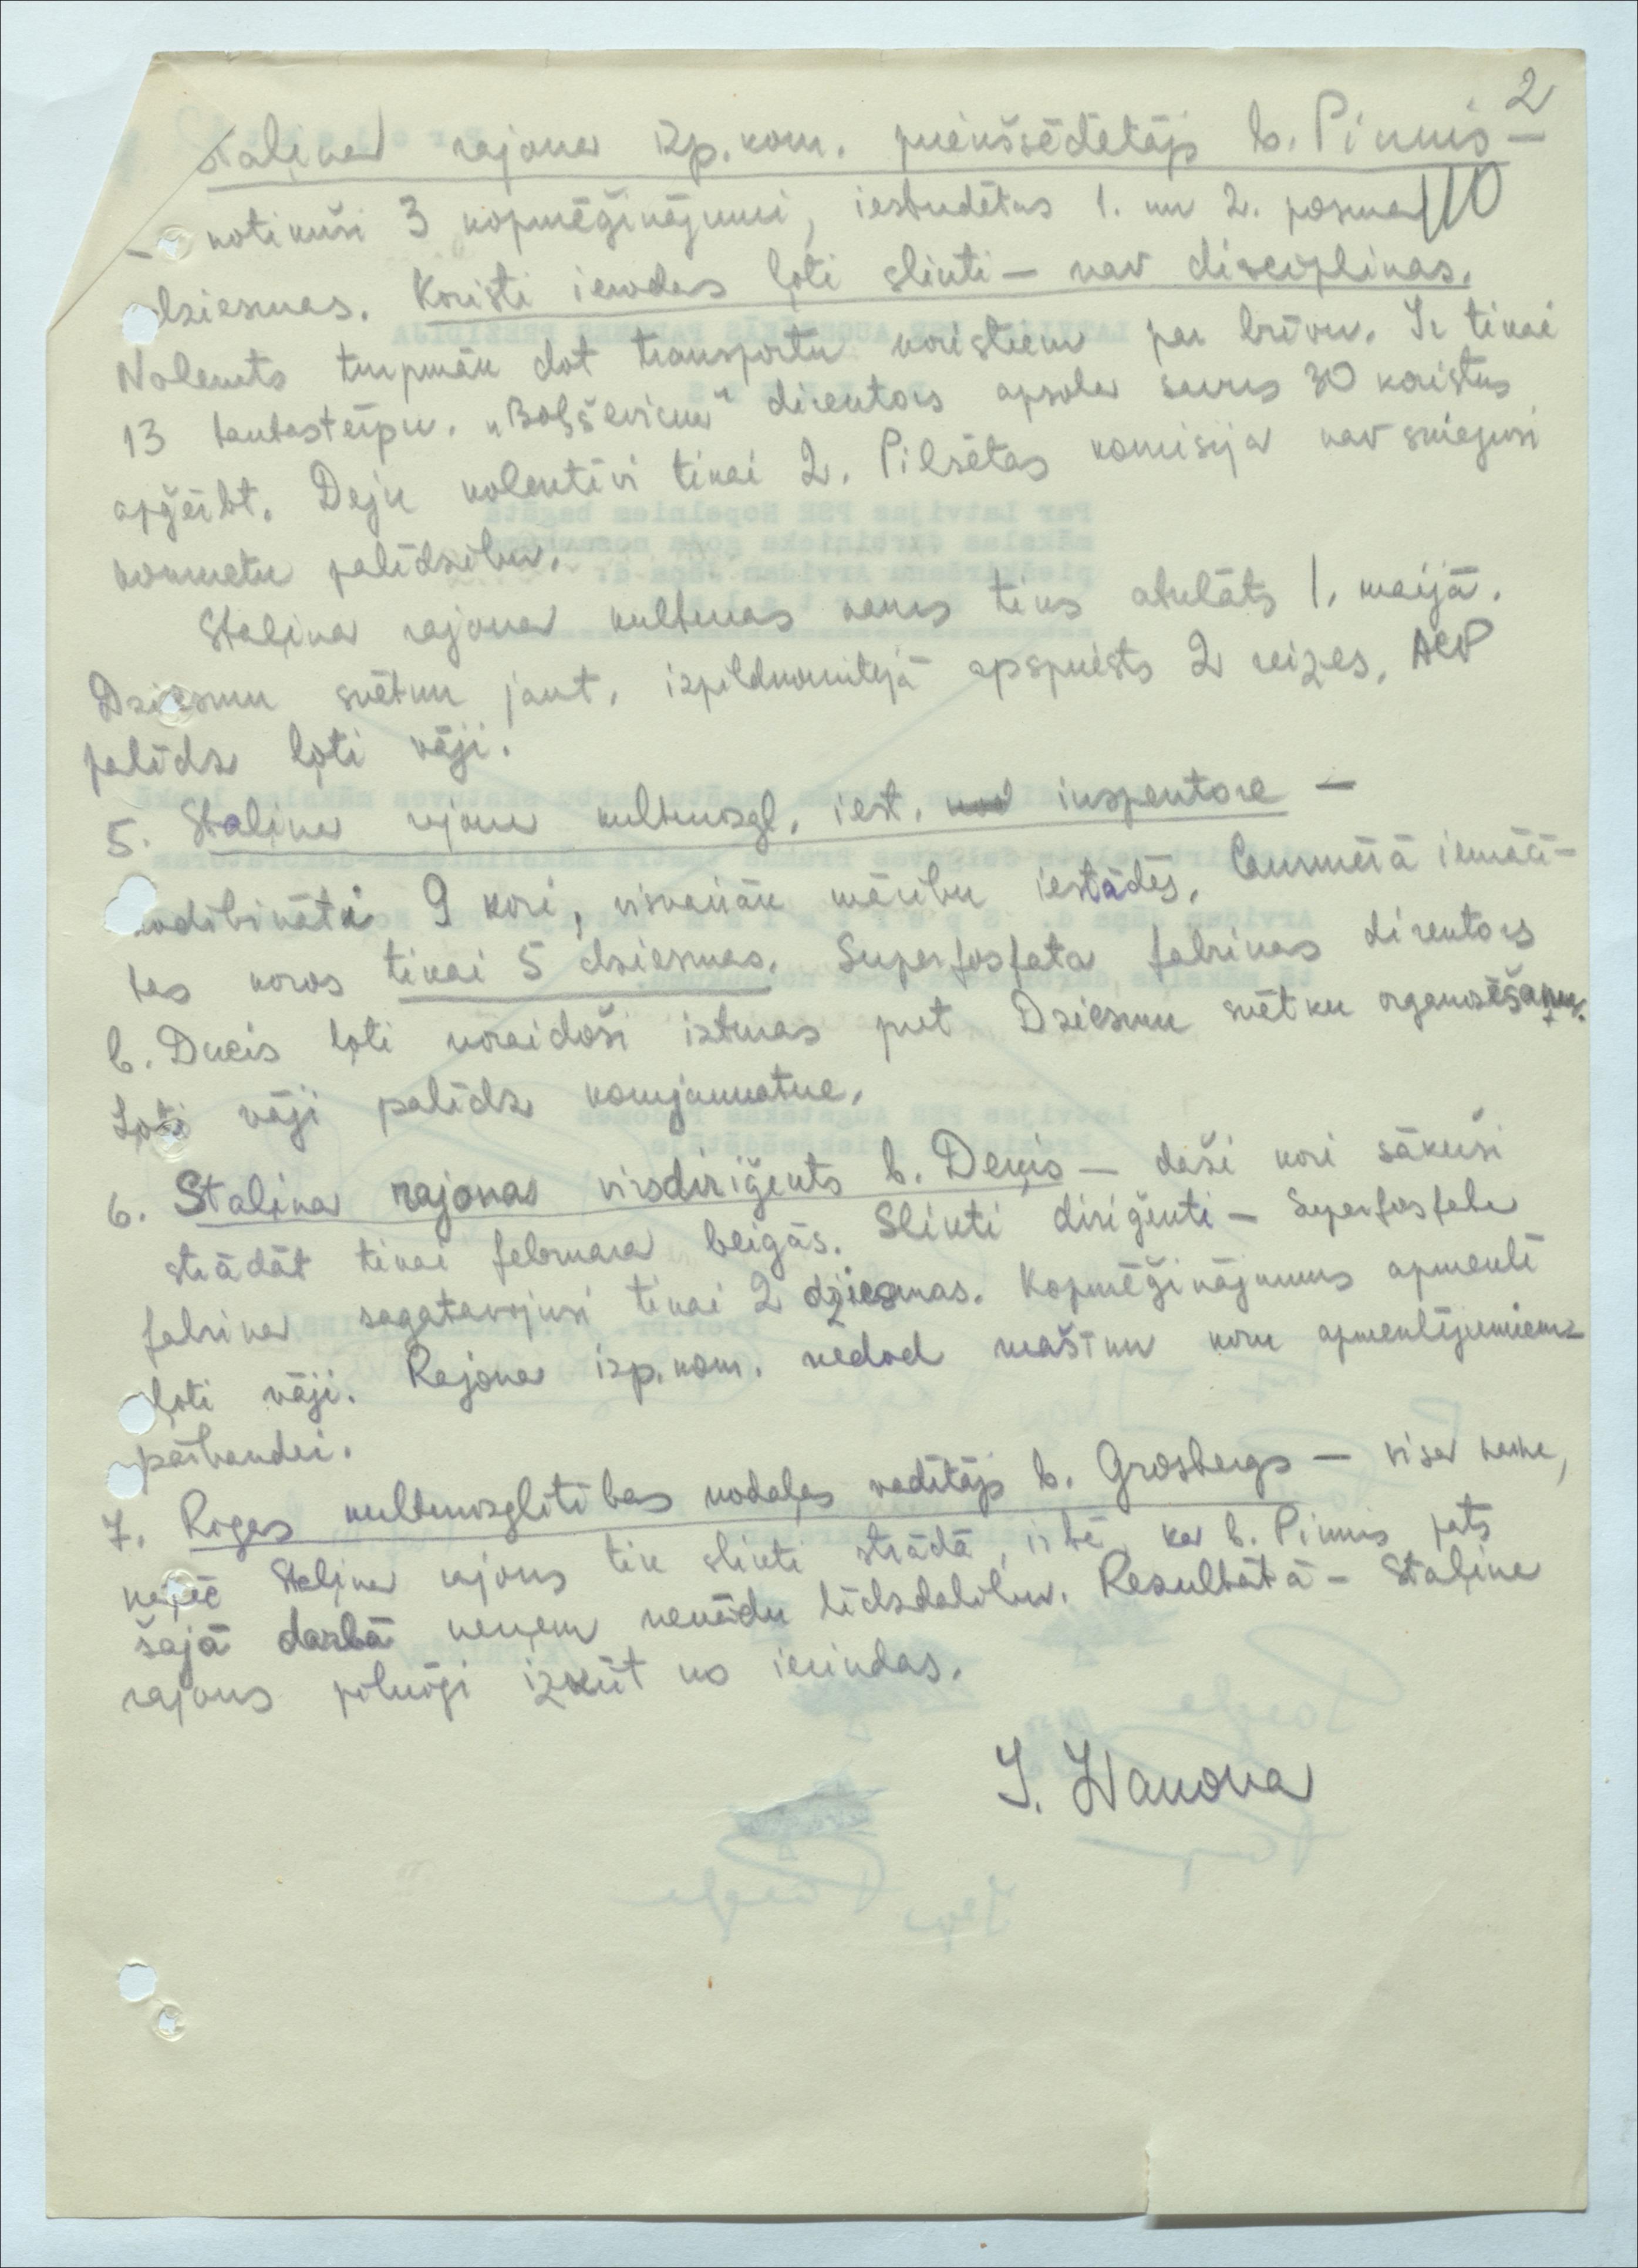 2
Staļina rajona izp. kom. priekšsēdētājs b. Pinnis —
110
— notikuši 3 kopmēģinājumi, iestudētas 1. un 2. posma
dziesmas. Koristi ierodas ļoti slikti — nav disciplīnas.
Nolemts turpmāk dot transportu koristiem par brīvu. Ir tikai
13 tautastērpu. „Boļševiku" direktors apsola savus 30 koristus
apģērbt. Deju kolektīvi tikai 2. Pilsētas komisija nav sniegusi
konkrētu palīdzību.
Staļina rajona kultūras nams tiks atklāts 1. maijā.
Dziesmu svētku jaut. izpildkomitejā apspriests 2 reizes. ACP
palīdz ļoti vāji.
5. Staļina rajona kulturizgl. iest. inspektore —
nodibināti 9 kori, visvairāk mācību iestādēs. Caurmērā iemācī-
tas koros tikai 5 dziesmas. Superfosfata fabrikas direktors
b. Ducis ļoti noraidoši izturas pret Dziesmu svētku organizēšanu.
Ļoti vāji palīdz komjaunatne.
6. Staļina rajona virsdiriģents b. Deņis — daži kori sākuši
strādāt tikai februara beigās. Slikti diriģenti — Superfosfata
fabrika sagatavojusi tikai 2 dziesmas. Kopmēģinājumus apmeklē
ļoti vāji. Rajona izp. kom. nedod mašīnu koru apmeklējumiem
pārbaudei.
7. Rīgas kulturizglītības nodaļas vadītājs b. Grosbergs — visa
kāpēc Staļina rajons tik slikti strādā, ir tā, ka b. Pinnis pats
šajā darbā neņem nekādu līdzdalību. Rezultātā — Staļina
rajons pilnīgi izkrīt no ierindas.
I. Ivanova